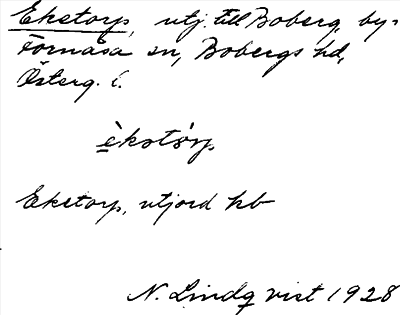 Eketorp, utj. till Boberg, by,
Fornåsa sn, Bobergs hd,
Österg. l.
èkstòrp
Eketorp, utjord hb
N. Lindqvist 1928